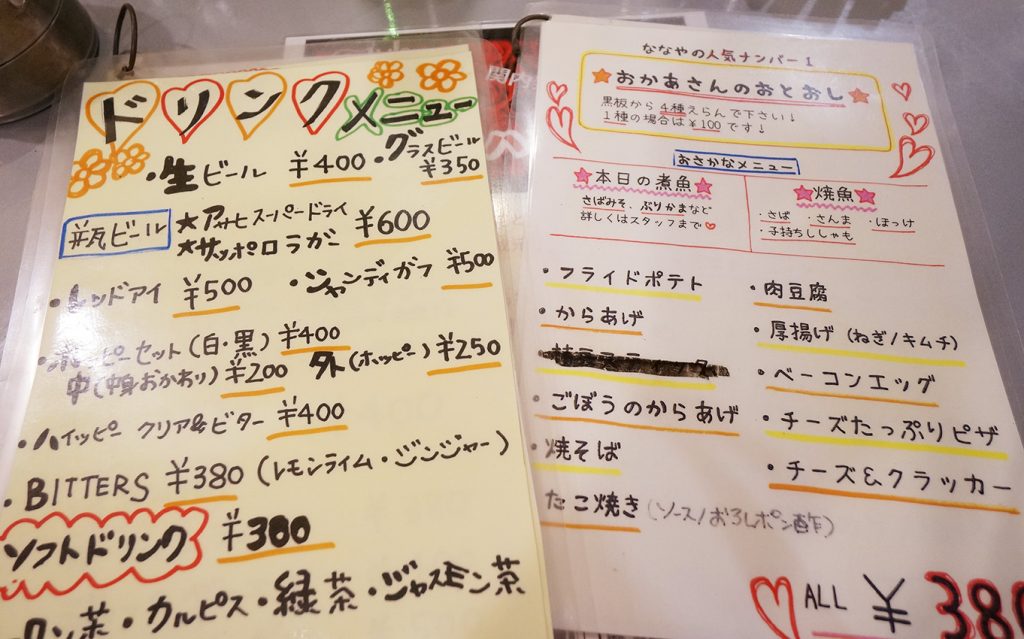 ドリンクメニュー
・生ビール ¥400 ・グラスビール ¥350
瓶ビール ★アサヒスーパードライ ¥600
★サッポロラガー
・レッドアイ ¥500 ・シャンディガフ ¥500
・ホッピーセット(白・黒) ¥400
中(中身おかわり) ¥200 外(ホッピー) ¥250
・ハイッピー クリア&ビター ¥400
・BITTERS ¥380 (レモンライム・ジンジャー)
ソフトドリンク ¥300
ウーロン茶・カルピス・緑茶・ジャスミン茶
関内
ななやの人気ナンバー1
★おかあさんのおとおし★
黒板から4種えらんで下さい↓
1種の場合は¥100です↓
おさかなメニュー
★本日の煮魚★
さばみそ、ぶりかまなど
詳しくはスタッフまで♡
★焼魚★
・さば ・さんま ・ほっけ
・子持ちししゃも
・フライドポテト
・からあげ
・ごぼうのからあげ
・焼そば
たこ焼き(ソース/おろしポン酢)
・肉豆腐
・厚揚げ(ねぎ/キムチ)
・ベーコンエッグ
・チーズたっぷりピザ
・チーズ&クラッカー
♡ALL ¥380